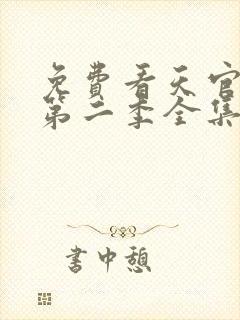 免費看天官
第二季全集
書中憩